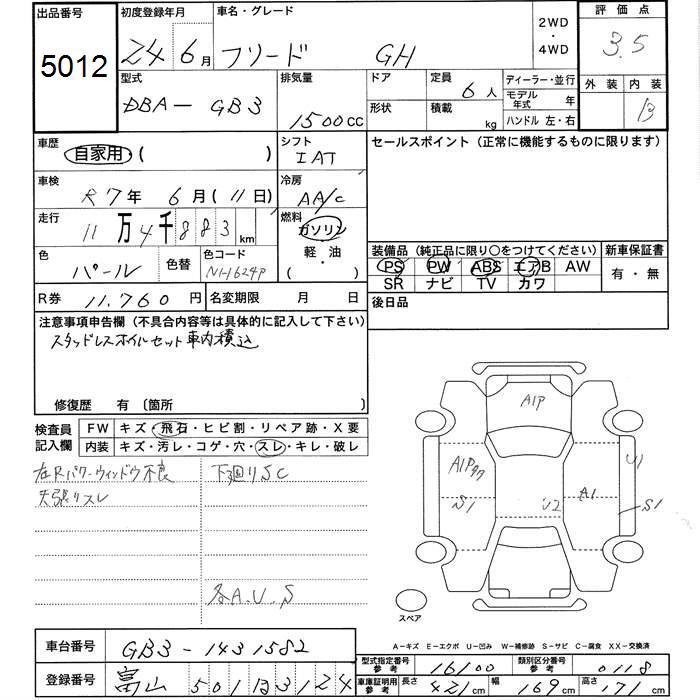 出品番号 初度登録年月 車名・グレード 2WD・4WD 評価点
5012 24年6月 フリード GH 3.5
型式 排気量 ドア 定員 6人 ディーラー・並行 外装 内装
DBA-GB3 1500cc 形状 積載 kg モデル年式 年 B
ハンドル 左・右
車歴 自家用 ( ) シフト IAT セールスポイント(正常に機能するものに限ります)
車検 R7年 6月(11日) 冷房 AA/C
走行 11万4千883km 燃料 ガソリン
軽・油
( )
色 パール 色替 色コード NH624P
装備品(純正品に限り○をつけてください) 新車保証書
PS PW ABS エアB AW 有・無
SR ナビ TV カワ
R券 11,760円 名変期限 月 日 後日品
注意事項申告欄(不具合内容等は具体的に記入して下さい)
スタッドレスホイルセット車内積込
修復歴 有 (箇所
検査員記入欄 FW キズ・飛石・ヒビ割・リペア跡・X要
内装 キズ・汚レ・コゲ・穴・スレ・キレ・破レ
右Rパワーウィンドウ不良 下廻りSC
天張りスレ
各A.U.S
A1P
A1P
S1
U2
A1
U1
S1
スペア
A-キズ E-エクボ U-凹み W-補修跡 S-サビ C-腐食 XX-交換済
車台番号 GB3-1431582
登録番号 富山 501 3124
型式指定番号 参考 16100 類別区分番号 参考 0118
車庫証明用 参考 長さ 421cm 幅 169cm 高さ 171cm